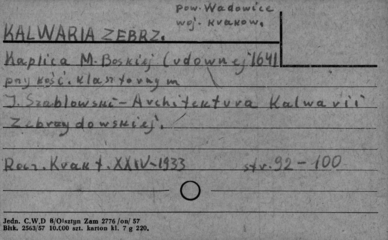 pow. Wadowice
woj. Kraków.
KALWARIA ZEBRZ.
Kaplica M. Boskiej (udownej 1641
przy kość. klasztornym
J. Szablowski - Architektura Kalwarii
Zebrzydowskiej.
Rocz. Krak t. XXIV-1933 str. 92-100
Jedn. C.W.D 8/Olsztyn Zam 2776 /on/ 57
Bhk. 2563/57 10.000 szt. karton kl. 7 g 220.